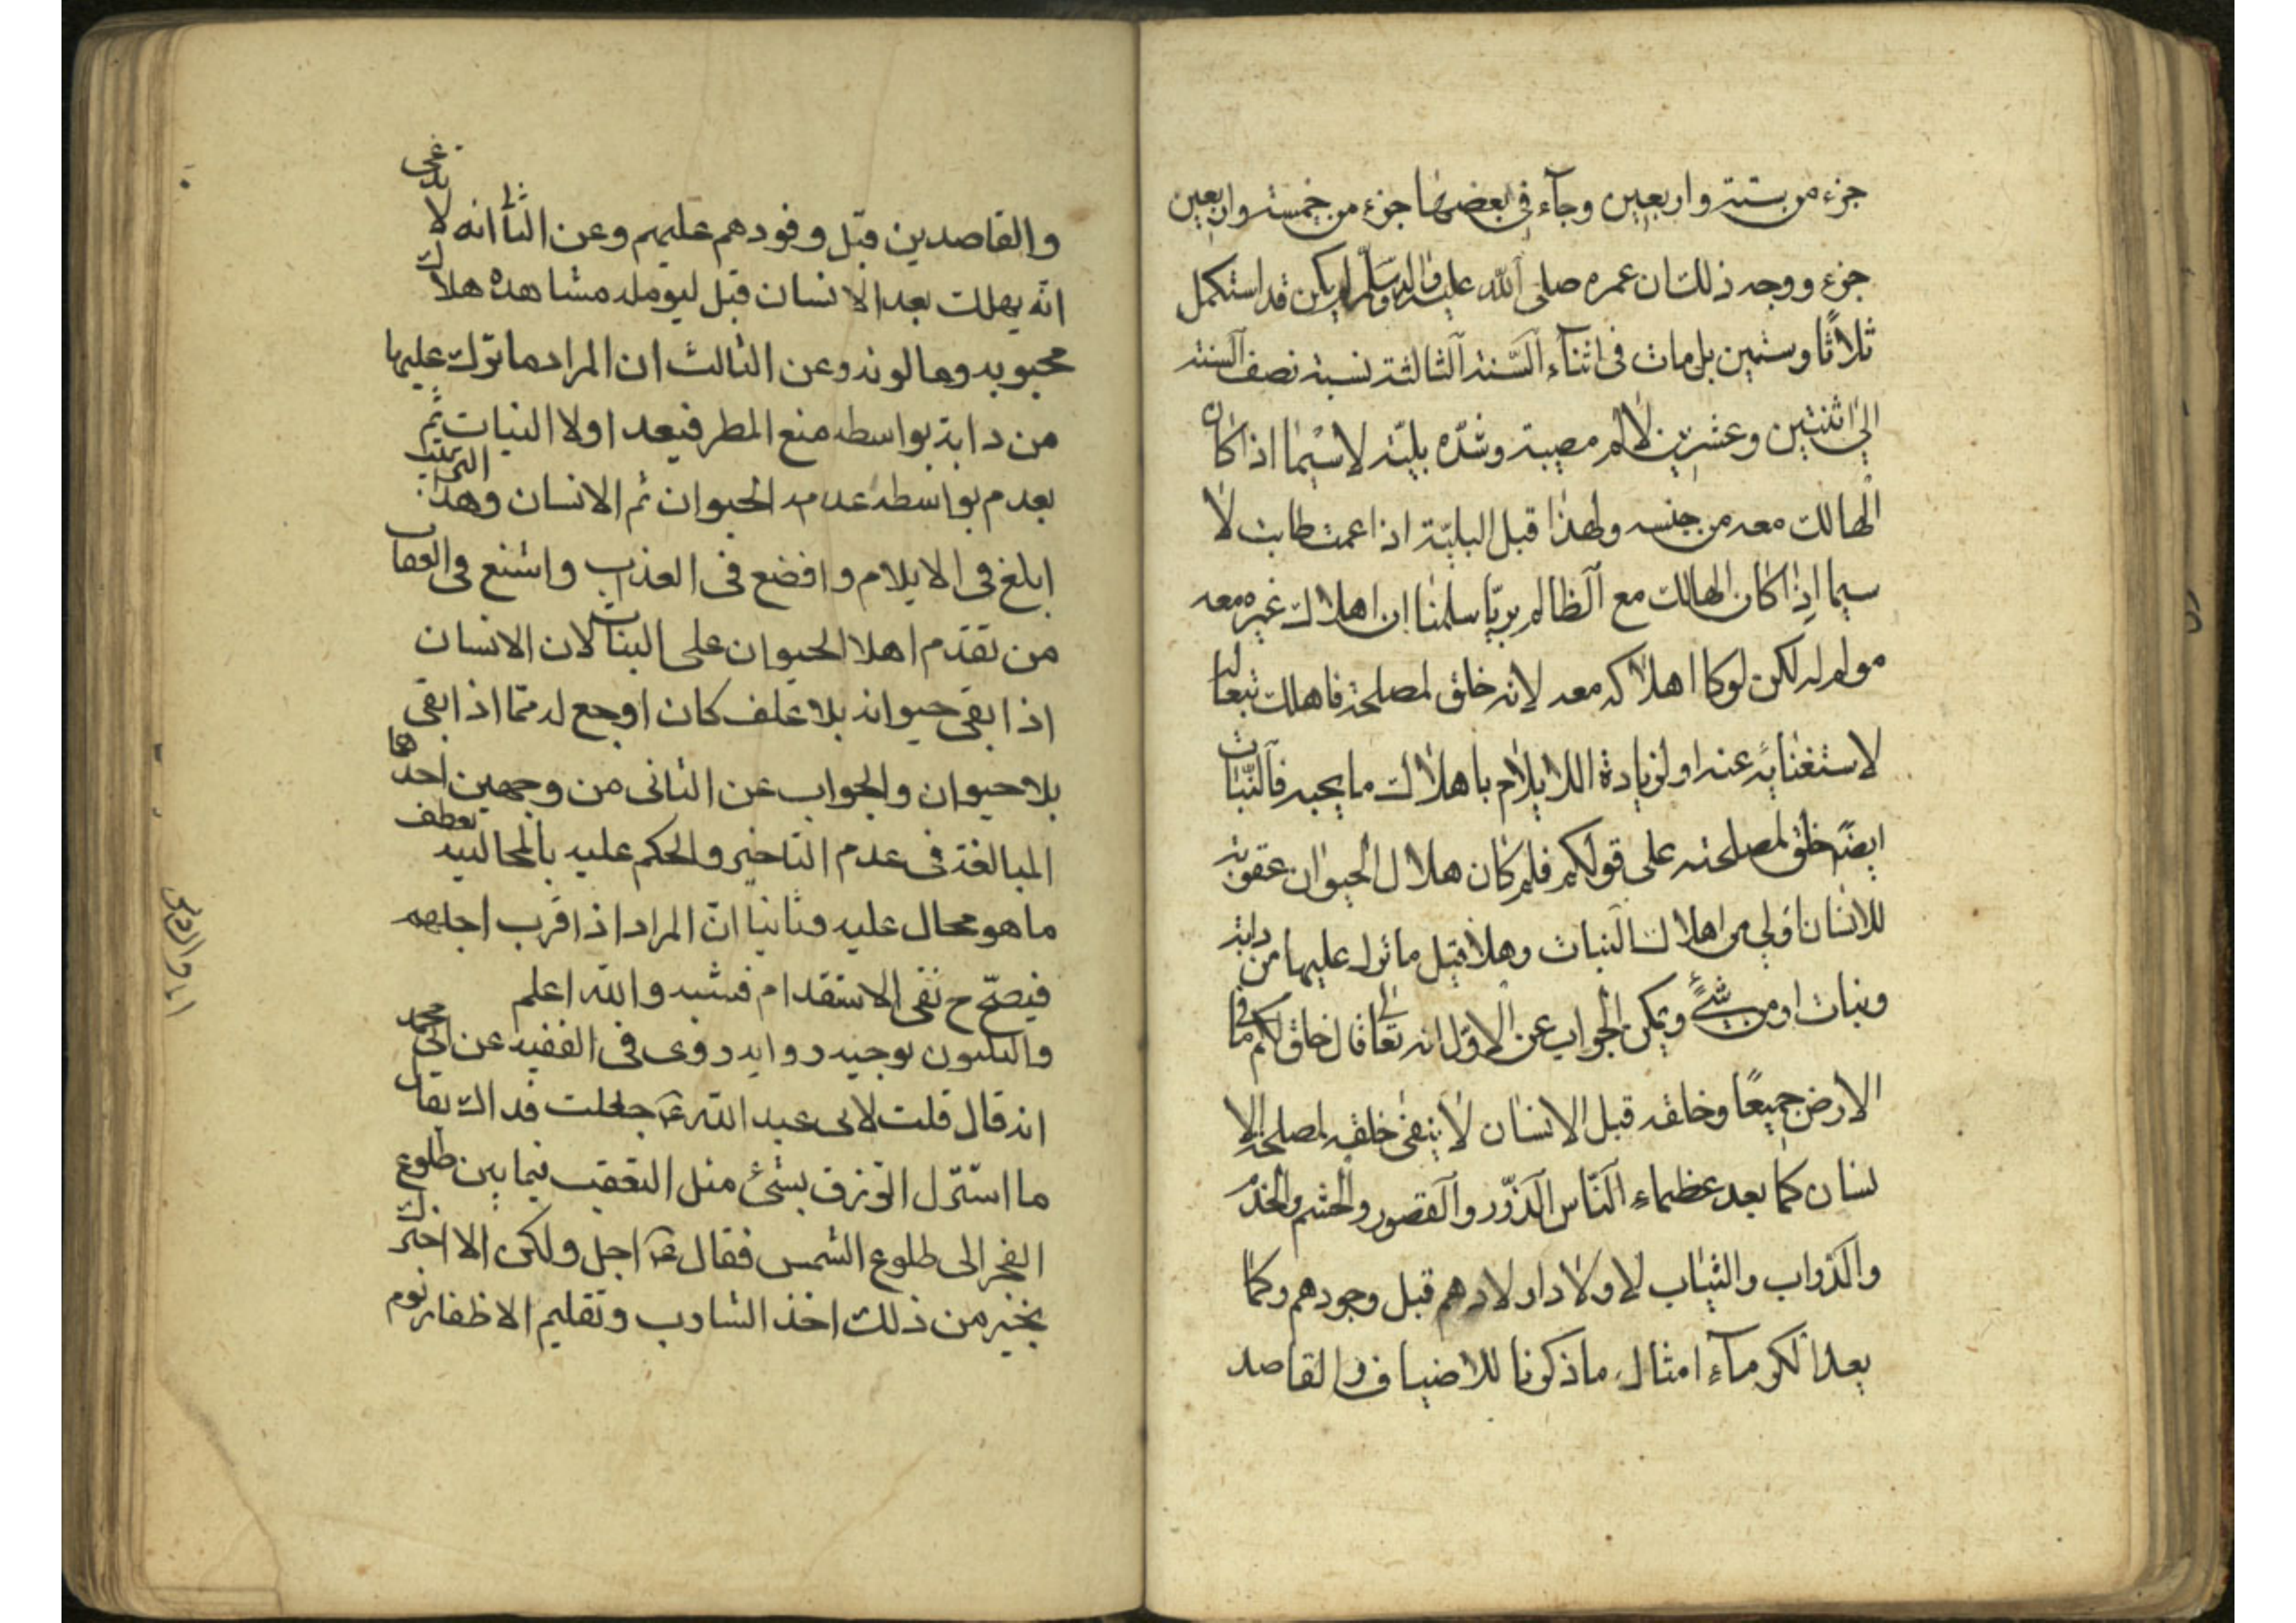 جزء من ستة واربعين وجآء في بعضها جزء من خمسة واربعين
جزء ووجه ذلك ان عمره صلى الله عليه وآله وسلّم لم يكن قد استكمل
ثلاثًا وستين بل مات في اثنآء السّنة الثالثة نسبة نصف السنة
الى اثنتين وعشرين لالم مصيبة وشدّه بليّة لاسيما اذا كان
الهالك معه من جنسه ولهذا قيل البليّة اذا عمت طابت لا
سيما اذا كان الهالك مع الظالم بريّا سلمنا ان اهلاك غيره معه
مولم له لكن لو كا اهلاكه معه لانه خلق لمصلحة فاهلك تبعا له
لاستغنائه عنه او لزيادة اللايلام باهلاك ما يحبه فالنّبات
ايضًا خلق لمصلحته على قولكم فلم كان هلاك الحيوان عقوبة
للانسان اولى من اهلاك النبات وهلا قيل ما ترك عليها من دابة
ونبات او من شئ ويمكن الجواب عن الاوّل انه تعالى قال خلق لكم ما في
الارض جميعًا وخلقه قبل الانسان لا ينفى خلقه لمصلحة الا
نسان كما يعد عظماء النّاس الدّور والقصور والحشم والخدم
والدّواب والثياب لاولاد اولادهم قبل وجودهم وكما
يعد الكرمآء امثال ما ذكرنا للاضياف والقاصد
والقاصدين قبل وفودهم عليهم وعن الثانى انه لا يدعى
انه يهلك بعد الانسان قبل ليومله مشاهدة هلاك
محبوبه ومالوفه وعن الثالث ان المراد ما ترك عليها
من دابة بواسطه منع المطر فيعد اولا النبات ثم
يعدم بواسطة عدمه الحيوان ثم الانسان وهذا الترتيب
ابلغ في الايلام وافضع في العذاب واشنع في العقاب
من تقدّم اهلا الحيوان على النبات لان الانسان
اذا بقى حيوانه بلا علف كان اوجع له ممّا اذا بقى
بلا حيوان والجواب عن الثانى من وجهين احدهما
المبالغة في عدم التاخير والحكم عليه بالمحالية بعطف
ما هو محال عليه وثانيا انّ المراد اذا قرب اجلهم
فيصحّ ح نفى الاستقدام فتنبه والله اعلم
توجيه رواية روى في الفقيه عن ابى محمد
انه قال قلت لابى عبد الله ع جعلت فداك يقال
ما استنزل الرزق بشئ مثل التعقيب فيما بين طلوع
الفجر الى طلوع الشمس فقال ع اجل ولكن الا اخبرك
بخير من ذلك اخذ الشارب وتقليم الاظفار يوم